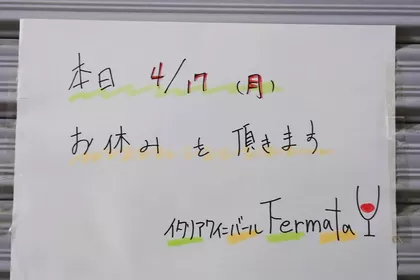 本日 4/17 (月)
お休みを頂きます
イタリアワインバール Fermata